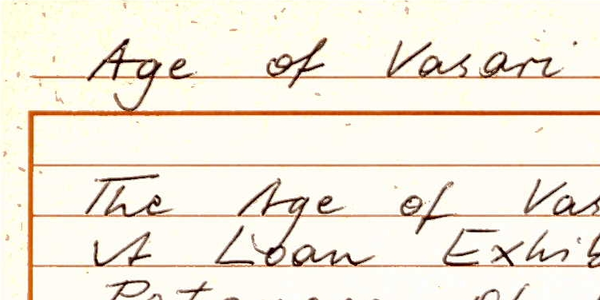 Age of Vasari
The Age of Vas
A Loan Exhib